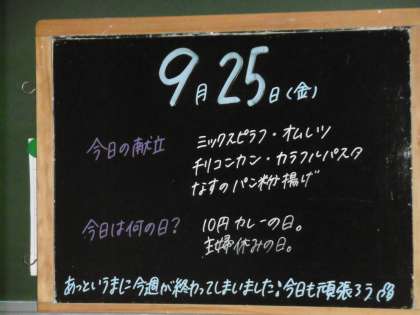 9月25日(金)
今日の献立
ミックスピラフ・オムレツ
チリコンカン・カラフルパスタ
なすのパン粉揚げ
今日は何の日?
10円カレーの日。
主婦休みの日。
あっというまに今週が終わってしまいました。今日も頑張ろう